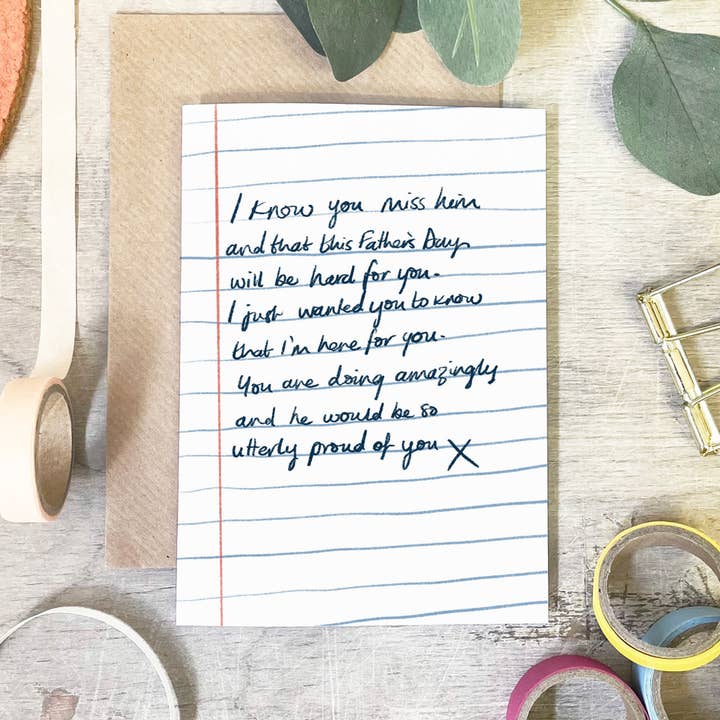 I know you miss him
and that this Father's Day
will be hard for you.
I just wanted you to know
that I'm here for you.
You are doing amazingly
and he would be so
utterly proud of you X